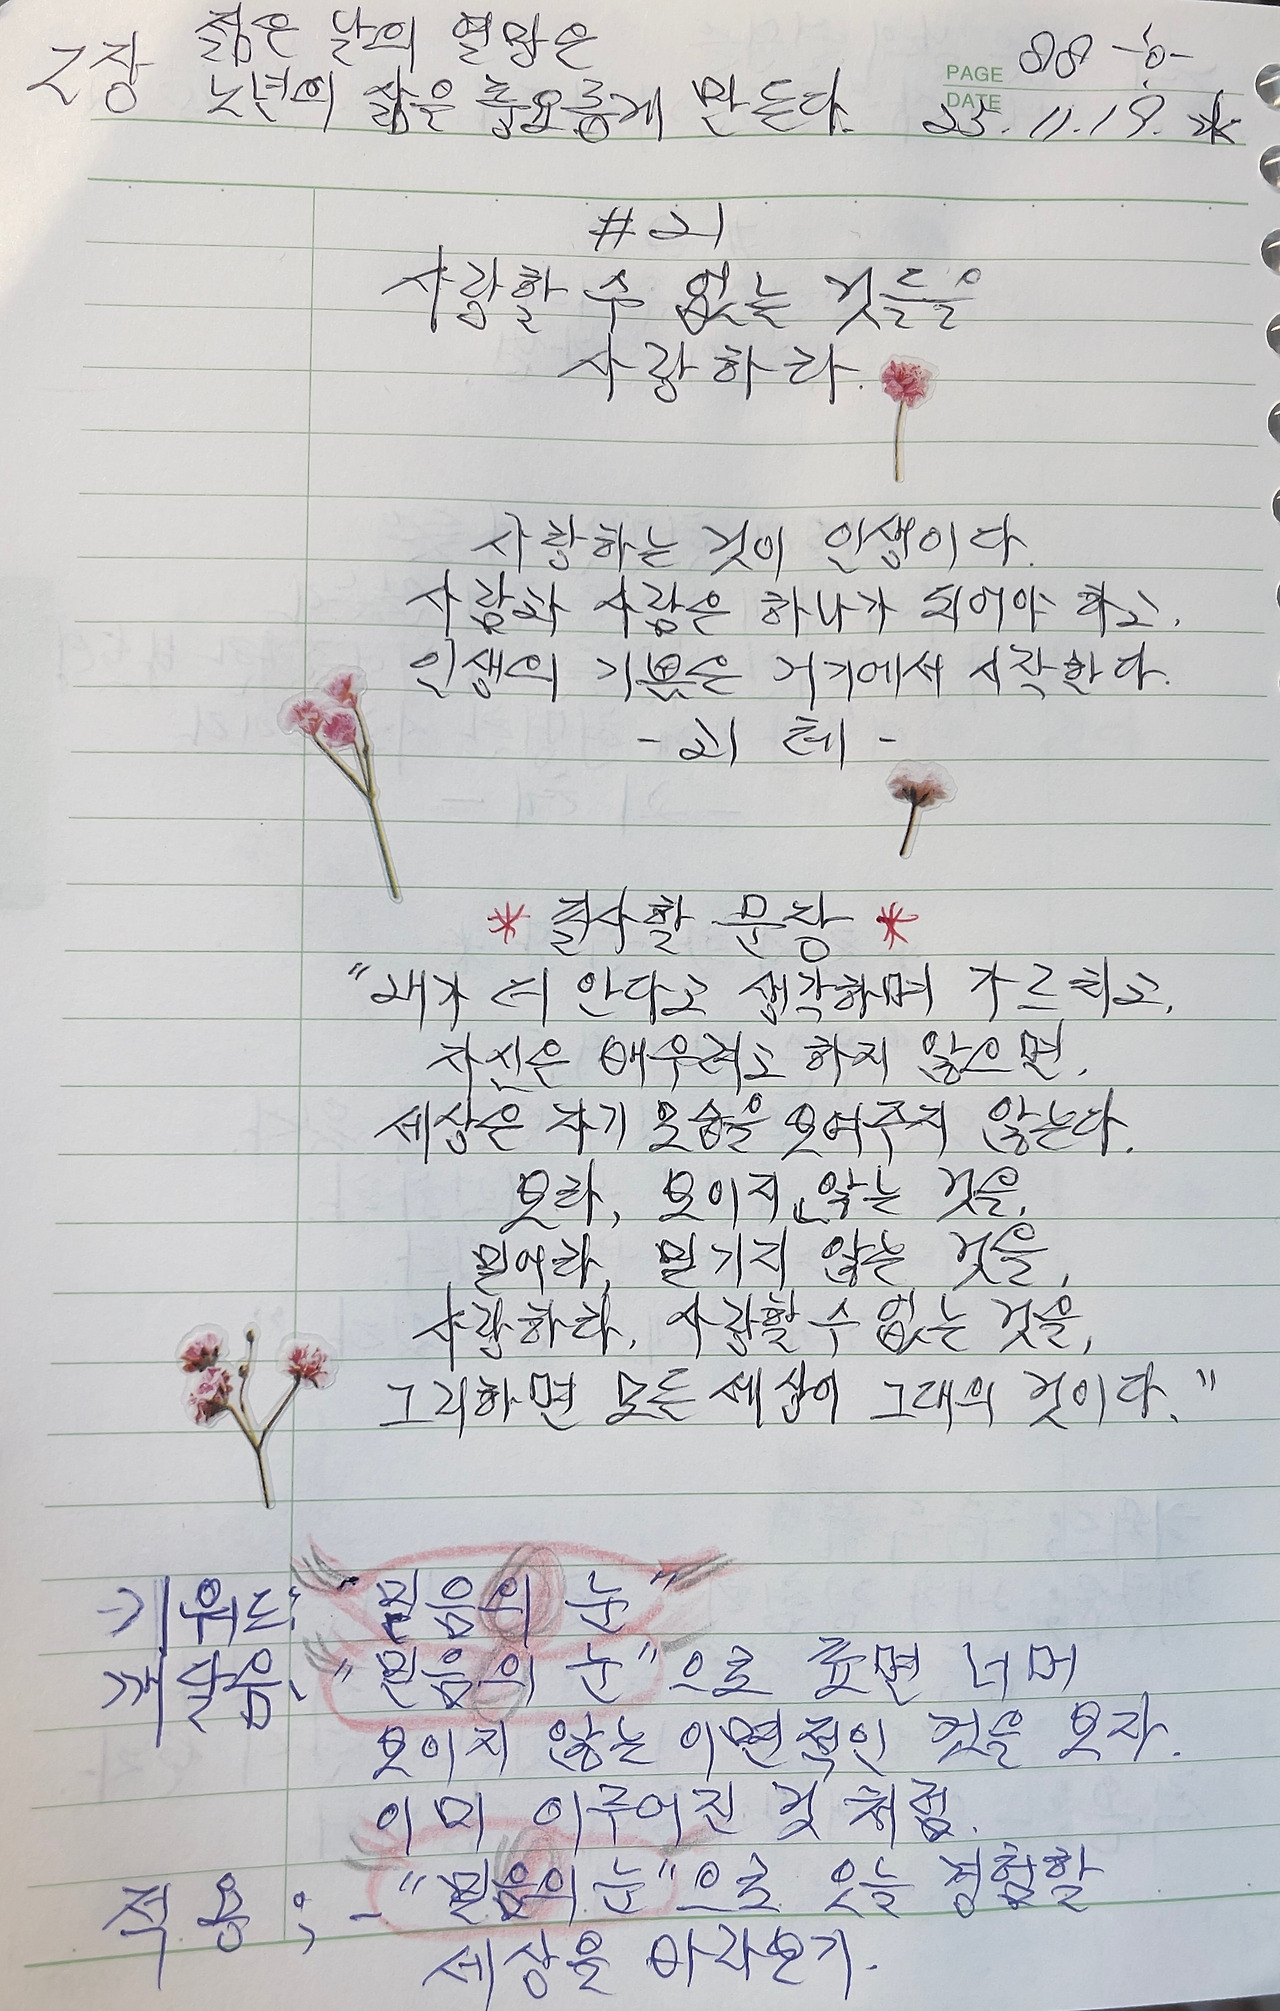 2장 젊은 날의 열망은
노년의 삶을 풍요롭게 만든다.
PAGE 88 -하-
DATE 25. 11. 19. 水
#21
사랑할 수 없는 것들을
사랑하라.
사랑하는 것이 인생이다.
사람과 사람은 하나가 되어야 하고,
인생의 기쁨은 거기에서 시작한다.
- 괴 테 -
* 필사할 문장 *
"내가 더 안다고 생각하며 가르치고,
자신은 배우려고 하지 않으면,
세상은 자기 모습을 보여주지 않는다.
보라, 보이지 않는 것을,
믿어라, 믿기지 않는 것을,
사랑하라, 사랑할 수 없는 것을,
그리하면 모든 세상이 그대의 것이다."
키워드: "믿음의 눈"
깨달음: "믿음의 눈"으로 표면 너머
보이지 않는 이면적인 것을 보자.
이미 이루어진 것 처럼.
적용; - "믿음의 눈"으로 오늘 경험할
세상을 바라보기.